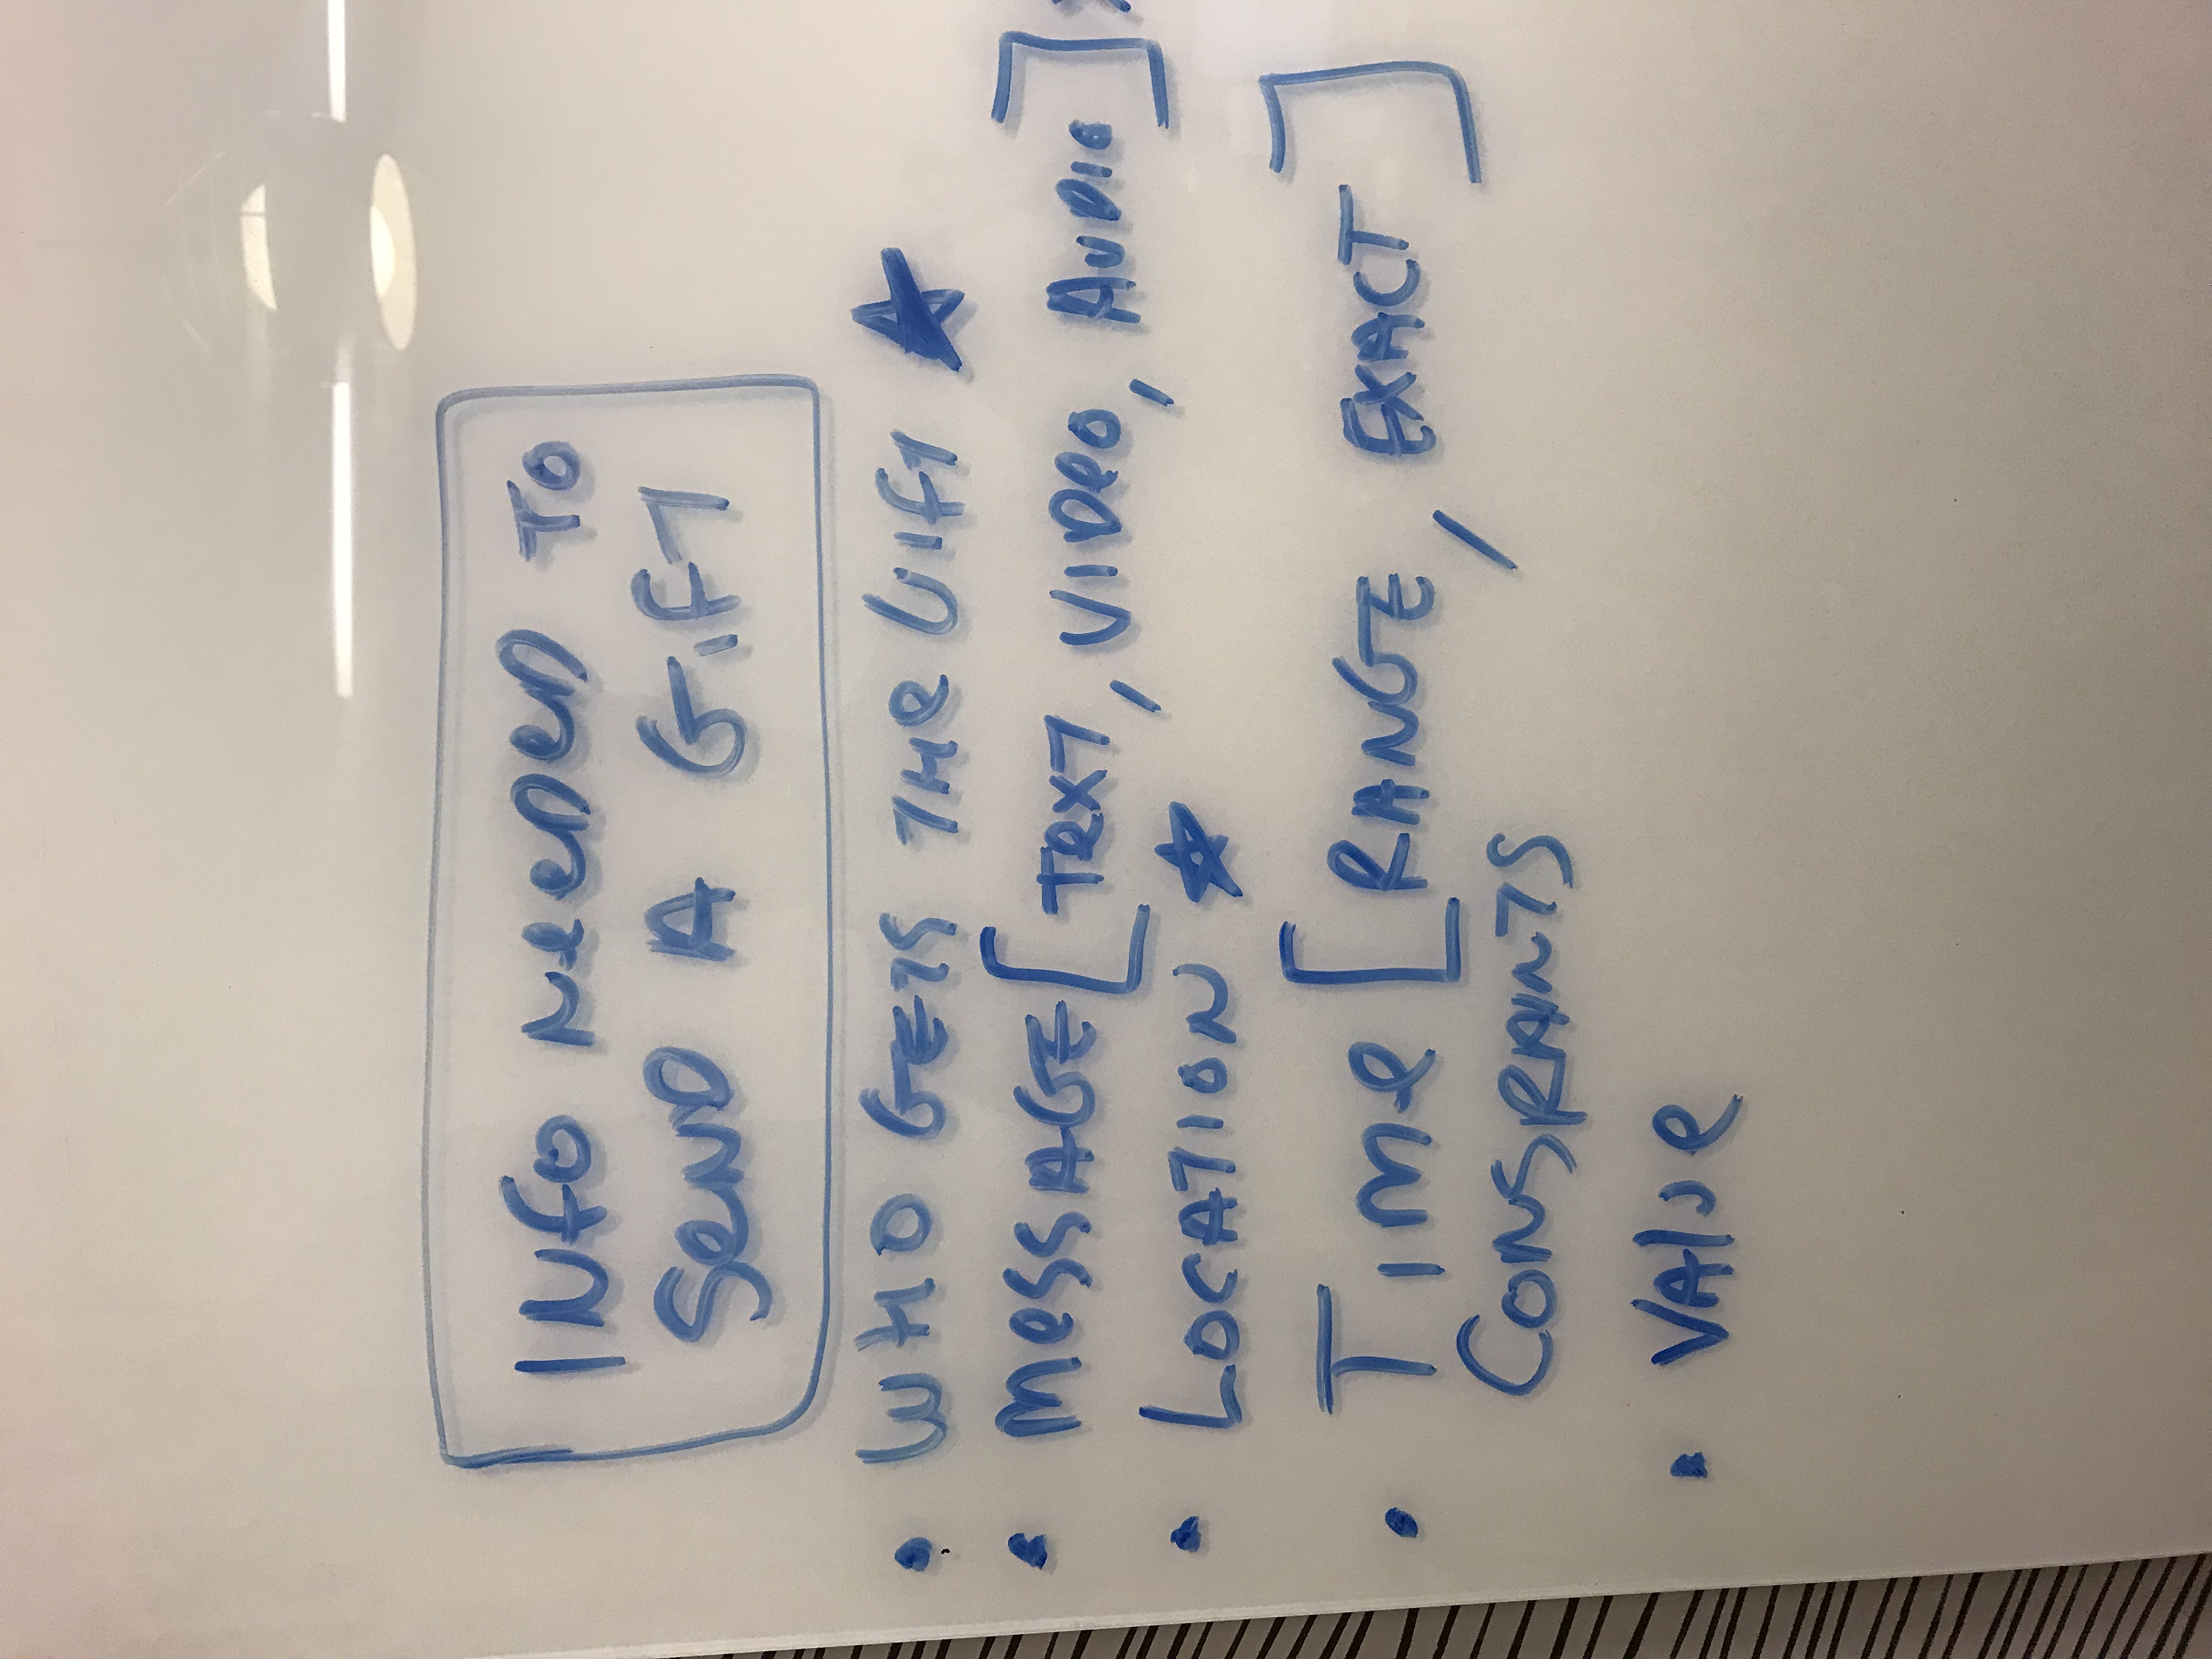 INFO NEEDED TO
SEND A GIFT
• WHO GETS THE GIFT ★
• MESSAGE [TEXT, VIDEO, AUDIO]
• LOCATION ★
• TIME [RANGE, EXACT]
CONSRAINTS
• VALUE